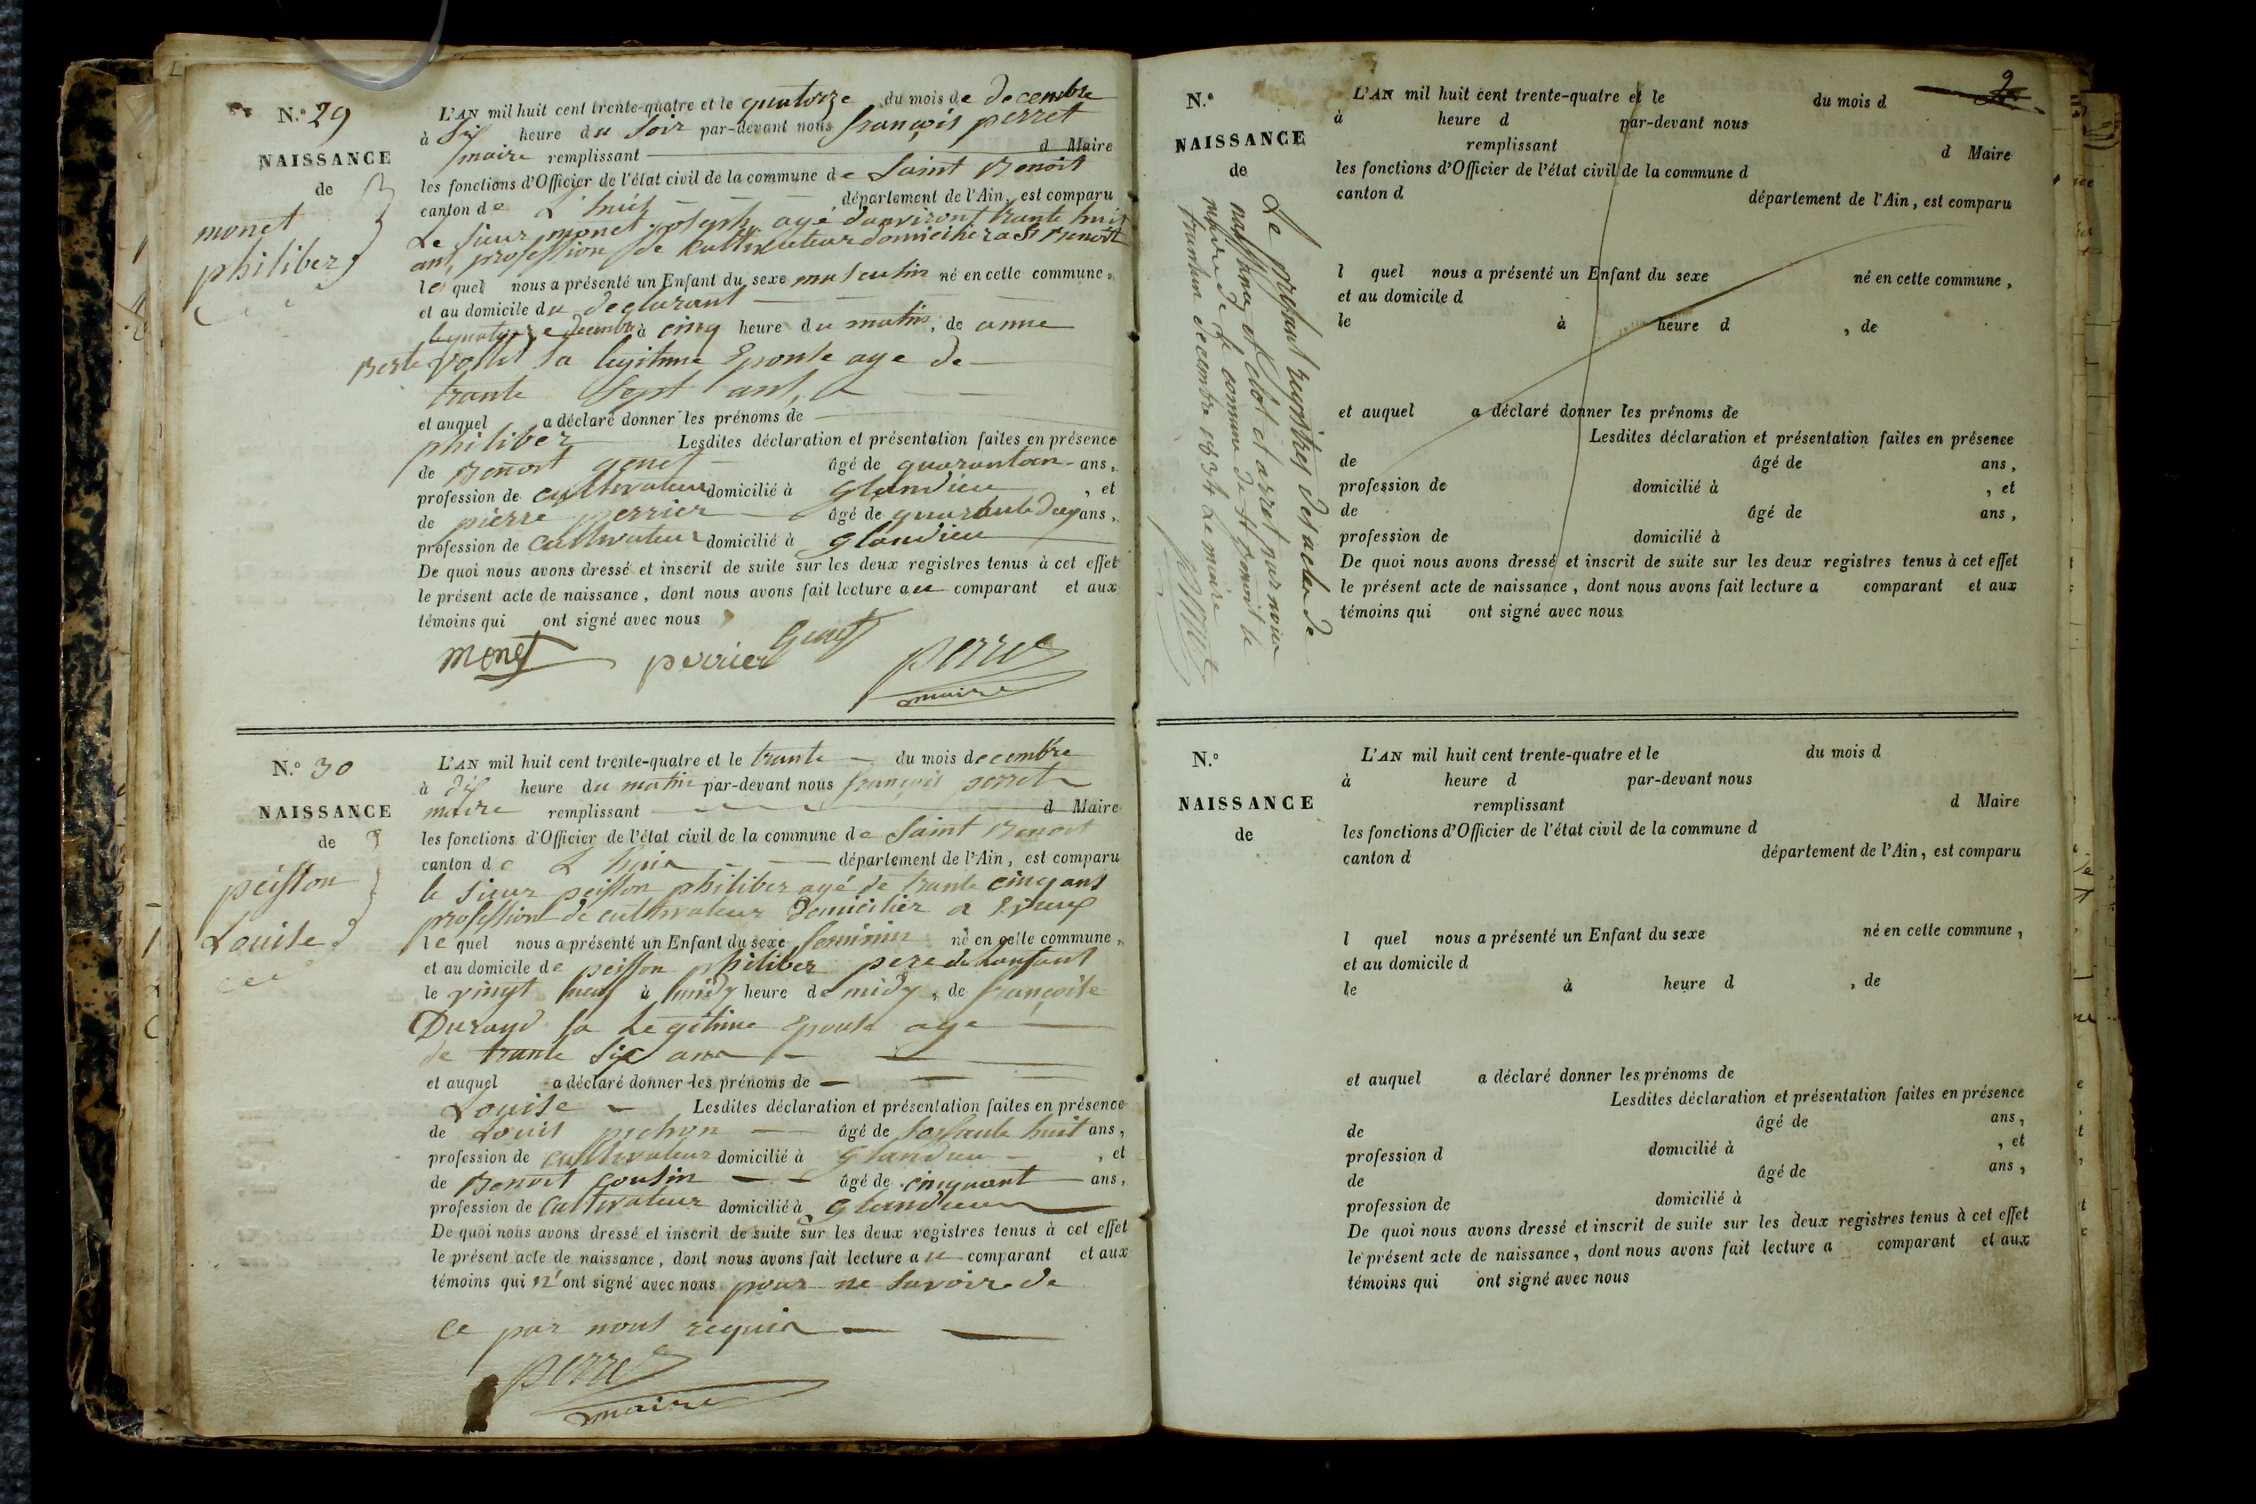 N.° 29
NAISSANCE
de
monet
philiber
L'AN mil huit cent trente-quatre et le quatorze du mois de decembre
à six heure du soir par-devant nous françois perret
maire remplissant d Maire
les fonctions d'Officier de l'état civil de la commune de Saint Benoit
canton de L'huis département de l'Ain, est comparu
Le sieur monet joseph agé danviront trante huit
ans, profession de cultivateur domicilier a St Benoit
lequel nous a présenté un Enfant du sexe masculin né en cette commune,
et au domicile du declarant
le quatorze decembre à cinq heure du matin, de anne
Berte sa legitime Eponse age de
trante sept ans,
et auquel a déclaré donner les prénoms de
philiber Lesdites déclaration et présentation faites en présence
de Benoit genet âgé de quarantan ans,
profession de cultivateur domicilié à glandieu, et
de pierre perrier âgé de quarante deux ans,
profession de cultivateur domicilié à glandieu
De quoi nous avons dressé et inscrit de suite sur les deux registres tenus à cet effet
le présent acte de naissance, dont nous avons fait lecture au comparant et aux
témoins qui ont signé avec nous
monet perrier Genet perret
maire
N.° 30
NAISSANCE
de
peisson
Louise
L'AN mil huit cent trente-quatre et le trante du mois decembre
à dix heure du matin par-devant nous françois perret
maire remplissant d Maire
les fonctions d'Officier de l'état civil de la commune de Saint Benoit
canton de L huis département de l'Ain, est comparu
le sieur peisson philiber agé de trante cinq ans
profession de cultivateur domicilier a Evieux
lequel nous a présenté un Enfant du sexe feminin né en cette commune,
et au domicile de peisson philiber pere de lanfant
le vingt neuf à midy heure de midy, de françoise
Durand sa Legitime Eponse age
de trante six ans
et auquel a déclaré donner les prénoms de
Louise Lesdites déclaration et présentation faites en présence
de Louis pichon âgé de soissante huit ans,
profession de cultivateur domicilié à glandieu, et
de Benoit cousin âgé de cinquant ans,
profession de cultivateur domicilié à glandieu
De quoi nous avons dressé et inscrit de suite sur les deux registres tenus à cet effet
le présent acte de naissance, dont nous avons fait lecture au comparant et aux
témoins qui n'ont signé avec nous pour ne savoir de
ce par nous requis
perret
maire
2
N.°
NAISSANCE
de
Le present registres des actes de
naissance et clot et arret par nous
maire de la commune de St Benoit le
trantun decembre 1834 Le maire
perret
L'AN mil huit cent trente-quatre et le du mois d
à heure d par-devant nous
remplissant d Maire
les fonctions d'Officier de l'état civil de la commune d
canton d département de l'Ain, est comparu
l quel nous a présenté un Enfant du sexe né en cette commune,
et au domicile d
le à heure d , de
et auquel a déclaré donner les prénoms de
Lesdites déclaration et présentation faites en présence
de âgé de ans,
profession de domicilié à , et
de âgé de ans,
profession de domicilié à
De quoi nous avons dressé et inscrit de suite sur les deux registres tenus à cet effet
le présent acte de naissance, dont nous avons fait lecture a comparant et aux
témoins qui ont signé avec nous
N.°
NAISSANCE
de
L'AN mil huit cent trente-quatre et le du mois d
à heure d par-devant nous
remplissant d Maire
les fonctions d'Officier de l'état civil de la commune d
canton d département de l'Ain, est comparu
l quel nous a présenté un Enfant du sexe né en cette commune,
et au domicile d
le à heure d , de
et auquel a déclaré donner les prénoms de
Lesdites déclaration et présentation faites en présence
de âgé de ans,
profession d domicilié à , et
de âgé de ans,
profession de domicilié à
De quoi nous avons dressé et inscrit de suite sur les deux registres tenus à cet effet
le présent acte de naissance, dont nous avons fait lecture a comparant et aux
témoins qui ont signé avec nous